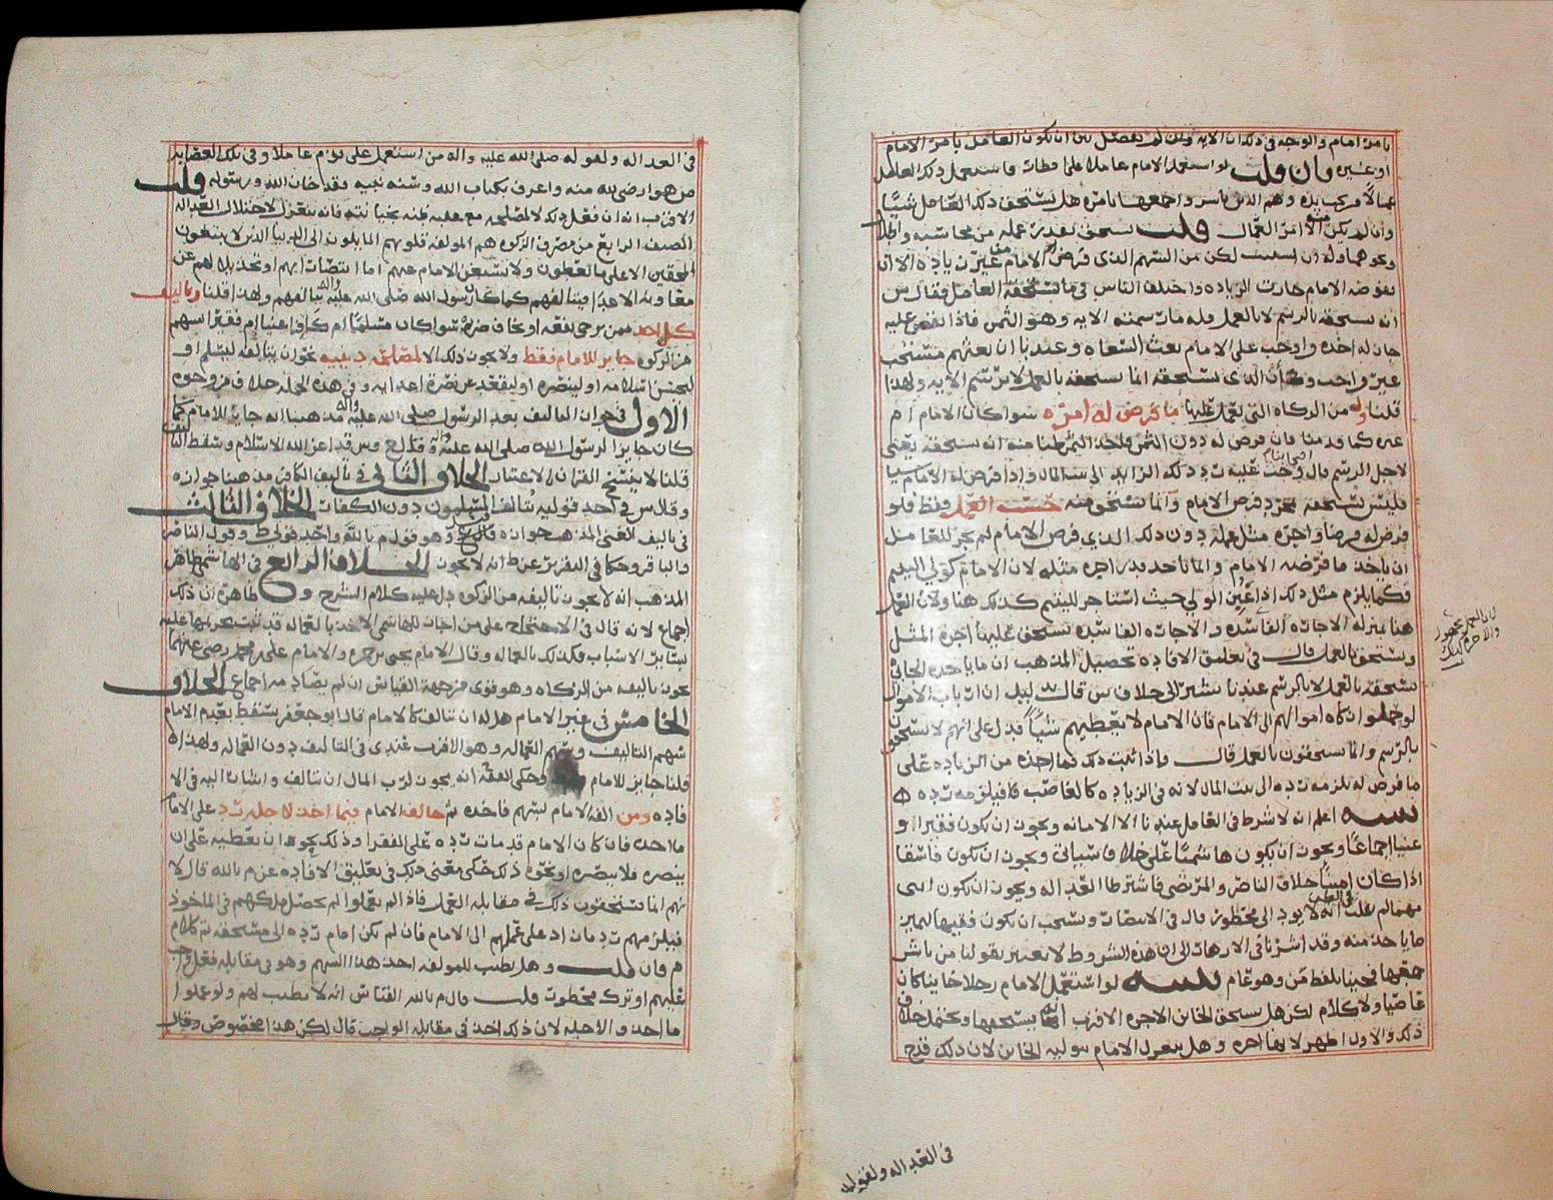 بامر امام والوجه في ذلك ان الايه ولن لم يفصل بين ان يكون العامل بامر الامام
او غيره وان قلت لو استعمل الامام عاملا على فاستعمل ذلك العامل
وهم الذين باشروا جمعها بامره هل يستحق ذلك العامل شيئا
وان لم يكن منه الا امر العمال قلت يستحق بقدر عمله من محاسبته
لكن من السهم الذي فرض له الامام من غير زياده الا ان
يفوضه الامام جازت الزياده واختلف الناس في ما يستحقه العامل فقال س
انه يستحقه بالرسم لا بالعمل وله ما سمته الايه وهو الثمن فاذا نقص عليه
جاز له اخذه واوجب على الامام بعث السعاه وعندنا ان بعثهم مستحب
غير واجب وان الذي يستحقه انما يستحقه بالعمل لا برسم الايه ولهذا
قلنا وله من الزكاه التي يعمل عليها ما فرض له امره سواء كان الامام ام
غيره كما قدمنا فان فرض له دون الثمن انه يستحقه يعني
لاجل الرسم قال وجب عليه رد ذلك الزايد الى بيت المال واذا فرض له الامام شيا
فليس يستحقه بمجرد فرض الامام وانما يستحق منه حسب العمل فقط فلو
فرض له فرضا واجره مثل عمله دون ذلك الذي فرض الامام لم يجز للعامل
ان ياخذ ما فرضه الامام وانما ياخذ بقدر اجره مثله لان الامام كولي اليتيم
فكما يلزم مثل ذلك اذا غبن الولي حيث استاجر لليتيم كذلك هنا ولان العمل
هنا بمنزله الاجاره الفاسده والاجاره الفاسده يستحق عليها اجره المثل
ويستحق بالعمل قال في تعليق الافاده تحصيل المذهب ان ما ياخذه الجابي
يستحقه بالعمل لا بالرسم عندنا يشير الى خلاف س قال بدليل ان ارباب الاموال
لو حملوا زكاه اموالهم الى الامام فان الامام لا يعطيهم شيئا فدل على انهم لا يستحقون
بالرسم وانما يستحقون بالعمل قال فاذا ثبت ذلك فما اخذه من الزياده على
ما فرض له يلزمه رده الى بيت المال لانه في الزياده كالغاصب فلا فيلزمه رده
تنبيه اعلم انه لا شرط في العامل عندنا الا الامانه ويجوز ان يكون فقيرا او
غنيا اجماعا ويجوز ان يكون هاشميا على خلاف سياتي ويجوز ان يكون فاسقا
اذا كان امينا خلاف الناصر والمرتضى فاشترطا العداله ويجوز ان يكون انثى
مهما لم يغلب في الظن انه لا يودي الى محظور قال في الانتصار ويستحب ان يكون فقيها ليميز
ما ياخذ منه وقد اشرنا في الازهار الى ان هذه الشروط لا تعتبر بقولنا من باشر
جمعها فجينا بلفظ من وهو عام تنبيه لو استعمل الامام رجلا خاينا كان
عاصيا ولا كلام لكن هل يستحق الخاين الاجره الاقرب انه يستحقها ويحتمل خلاف
ذلك والاول اظهر وهل ينعزل الامام بتوليه الخاين لان ذلك قدح
لان العمل محظور
في العداله ولقوله
في العداله ولقوله صلى الله عليه واله من استعمل على قوم عاملا وفي تلك العصابه
من هو ارضى لله منه واعرف بكتاب الله وسنه نبيه فقد خان الله ورسوله قلت
الاقرب انه ان فعل ذلك لا لمصلحه مع غلبه ظنه بخيانته فانه ينعزل لاختلال العداله
الصنف الرابع من مصرف الزكوه هم المولفه قلوبهم المايلون الى الدنيا الذين لا يتبعون
المحقين الا على ما يعطون ولا يستغني الامام عنهم اما انتصارا بهم او تخذيلا لهم عن
معاونه الاعدا فيتالفهم كما كان رسول الله صلى الله عليه واله يتالفهم ولهذا قلنا وتاليف
كل احد ممن يرجى نفعه او يخاف ضره سوا كان مسلما ام كافرا غنيا ام فقيرا سهم
من الزكوه جايز للامام فقط ولا يجوز ذلك الا لمصلحه دينيه نحو ان يتالفه ليسلم او
ليحسن اسلامه او لينصره او ليقعد عن نصره اعدايه وفي هذه الجمله خلاف من وجوه
الاول في جواز التاليف بعد الرسول صلى الله عليه واله مذهبنا انه جايز للامام كما
كان جايزا لرسول الله صلى الله عليه واله وقال ع وس قد اعز الله الاسلام وسقط التاليف
قلنا لا ينسخ القران الاعتبار الخلاف الثاني في تاليف الكافر مذهبنا جوازه
وقال س في احد قوليه يتالف المسلمون دون الكفار الخلاف الثالث
في تاليف الغني المذهب جوازه قال ع وهو قول م بالله واحد قولي ط وقول الناصر
والباقر وحكى في التقرير عن ط انه لا يجوز الخلاف الرابع في الهاشمي ظاهر
المذهب انه لا يجوز تاليفه من الزكوه دل عليه كلام الشرح وظاهره ان ذلك
اجماع لانه قال في الاحتجاج على من اجاز للهاشمي الاخذ بالعماله قد ثبت تحريمها عليه
بساير الاسباب فكذلك بالعماله وقال الامام يحيى بن حمزه والامام علي بن محمد رضي عنهما
يجوز تاليفه من الزكاه وهو قوي من جهه القياس ان لم يصادمه اجماع الخلاف
الخامس في غير الامام هل له ان يتالف كالامام قال ابو جعفر يسقط بعدم الامام
سهم التاليف وسهم العماله وهو الاقرب عندي في التاليف دون العماله ولهذا
قلنا جايز للامام وحكى الفقيه انه يجوز لرب المال ان يتالف واشار اليه في الا
فاده ومن الفه الامام لسهم فاخذه ثم خالفه الامام فيما اخذ لاجله رد على الامام
ما اخذ فان كان الامام قد مات رده على الفقرا وذلك نحو ان يعطيه على ان
ينصره فلا ينصره او نحو ذلك حكى معنى ذلك في تعليق الافاده عن م بالله قال لا
نهم انما يستحقون ذلك في مقابله العمل فاذا لم يعملوا لم يحصل ملكهم في الماخوذ
فيلزمهم رد ما زاد على عملهم الى الامام فان لم يكن امام رده الى مستحقه تم كلام
م فان قلت وهل يطيب للمولفه اخذ هذا السهم وهو في مقابله فعل واجب
عليهم او ترك محظور قلت قال م بالله القياس انه لا يطيب لهم ولو عملوا
ما اخذوا لاجله لان ذلك اخذ في مقابله الواجب قال لكن هذا مخصوص وقال